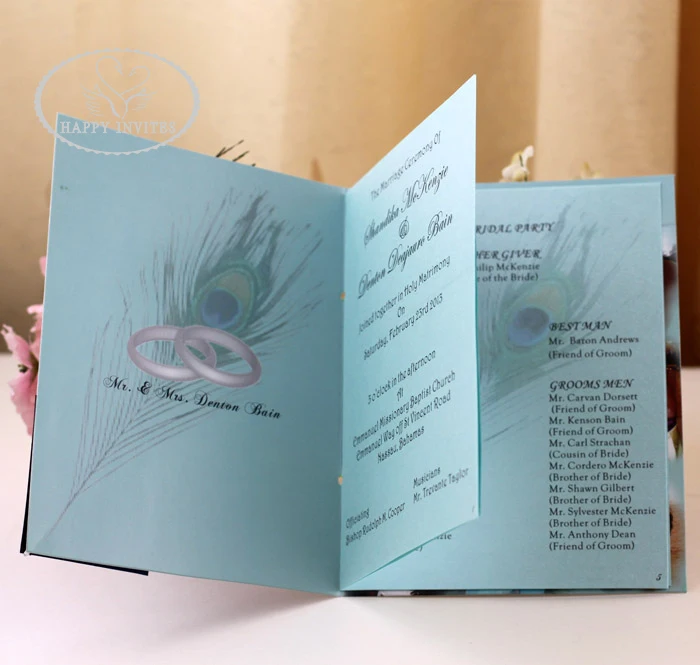 HAPPY INVITES
Mr. & Mrs. Denton Bain
The Marriage Ceremony Of
Shandika McKenzie
&
Denton Deajauro Bain
Joined together in Holy Matrimony
On
Saturday, February 23rd 2013
3 o'clock in the afternoon
At
Emmanuel Missionary Baptist Church
Emmanuel Way off St Vincent Road
Nassau, Bahamas
Officiating
Bishop Rudolph M. Cooper
Musicians
Mr. Trevante Taylor
RIDAL PARTY
HER GIVER
hilip McKenzie
e of the Bride)
BEST MAN
Mr. Baton Andrews
(Friend of Groom)
GROOMS MEN
Mr. Carvan Dorsett
(Friend of Groom)
Mr. Kenson Bain
(Friend of Groom)
Mr. Carl Strachan
(Cousin of Bride)
Mr. Cordero McKenzie
(Brother of Bride)
Mr. Shawn Gilbert
(Brother of Bride)
Mr. Sylvester McKenzie
(Brother of Bride)
Mr. Anthony Dean
(Friend of Groom)
5